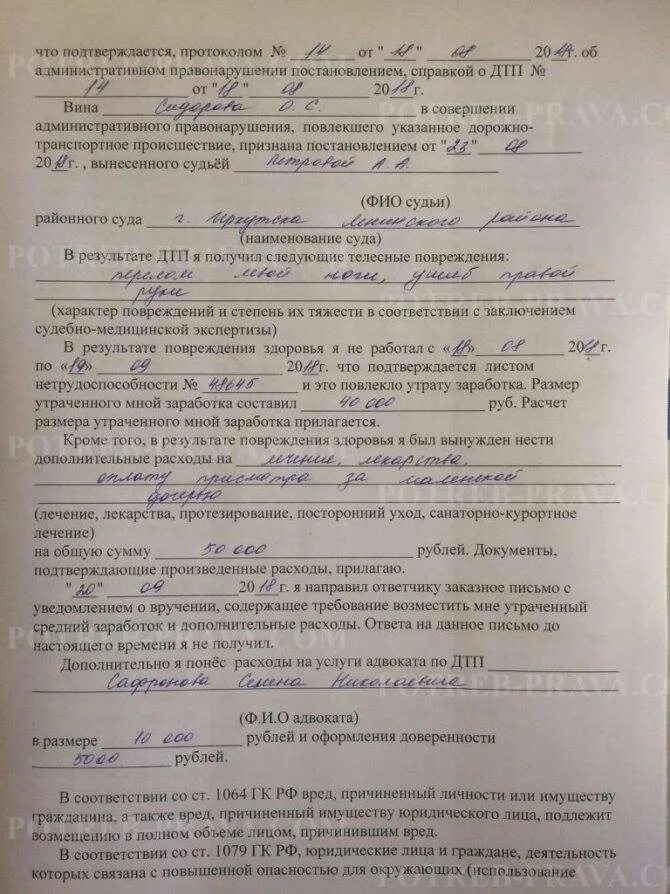 что подтверждается, протоколом № 14 от "18" 08 2018г. об
административном правонарушении постановлением, справкой о ДТП №
14 от "18" 08 2018г.
Вина Сидорова О. С. в совершении
административного правонарушения, повлекшего указанное дорожно-
транспортное происшествие, признана постановлением от "23" 08
2018г., вынесенного судьёй Петровой А. А.
(ФИО судьи)
районного суда г. Иркутска Ленинского района
(наименование суда)
В результате ДТП я получил следующие телесные повреждения:
перелом левой ноги, ушиб правой
руки
(характер повреждений и степень их тяжести в соответствии с заключением
судебно-медицинской экспертизы)
В результате повреждения здоровья я не работал с «18» 08 2018г.
по «19» 09 2018г. что подтверждается листом
нетрудоспособности № 48645 и это повлекло утрату заработка. Размер
утраченного мной заработка составил 40 000 руб. Расчет
размера утраченного мной заработка прилагается.
Кроме того, в результате повреждения здоровья я был вынужден нести
дополнительные расходы на лечение, лекарства,
оплату присмотра за маленькой
дочерью
(лечение, лекарства, протезирование, посторонний уход, санаторно-курортное
лечение)
на общую сумму 50 000 рублей. Документы,
подтверждающие произведенные расходы, прилагаю.
"20" 09 2018 г. я направил ответчику заказное письмо с
уведомлением о вручении, содержащее требование возместить мне утраченный
средний заработок и дополнительные расходы. Ответа на данное письмо до
настоящего времени я не получил.
Дополнительно я понёс расходы на услуги адвоката по ДТП
Сафронова Семена Николаевича
(Ф.И.О адвоката)
в размере 10 000 рублей и оформления доверенности
5000 рублей.
В соответствии со ст. 1064 ГК РФ вред, причиненный личности или имуществу
гражданина, а также вред, причиненный имуществу юридического лица, подлежит
возмещению в полном объеме лицом, причинившим вред.
В соответствии со ст. 1079 ГК РФ, юридические лица и граждане, деятельность
которых связана с повышенной опасностью для окружающих (использование
POTREB-PRAVA.COM